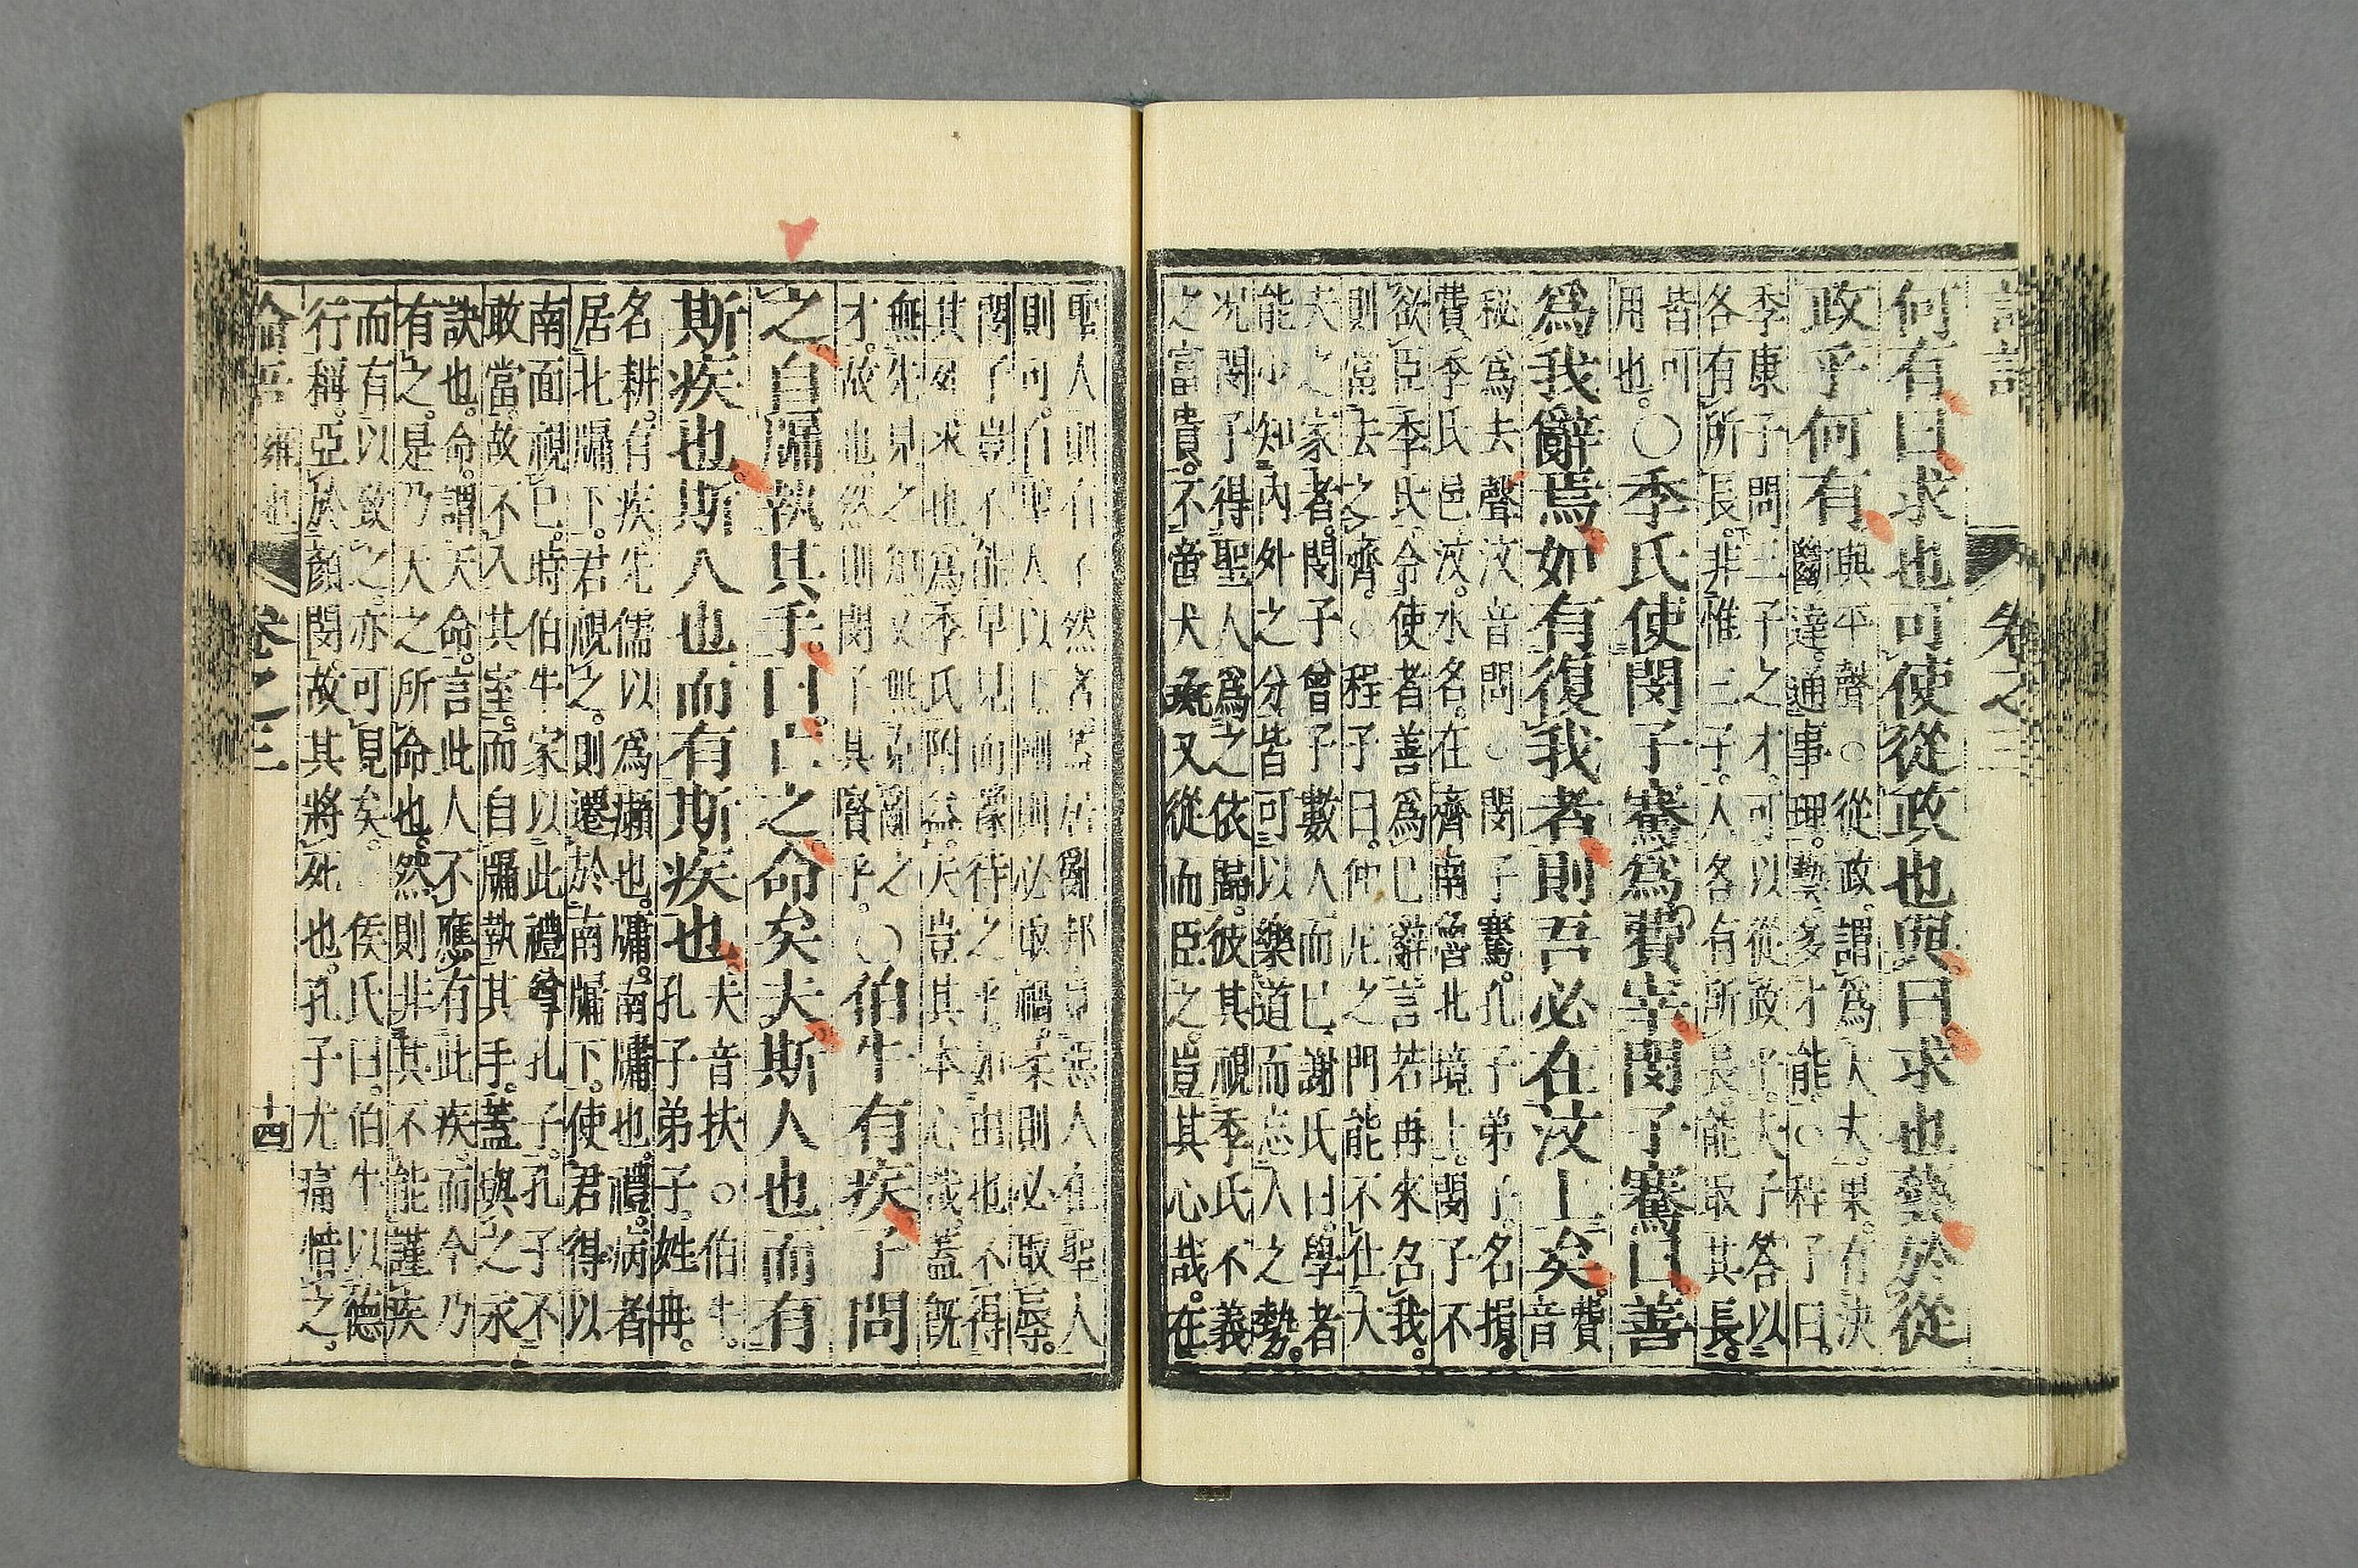 卷之三
何有曰求也可使從政也與曰求也藝於從
政乎何有與平聲○從政謂爲大夫果有決
斷達通事理藝多才能○程子曰
季康子問三子之才可以從政乎夫子答以
各有所長非惟三子人各有所長能取其長
皆可
用也○季氏使閔子騫爲費宰閔子騫曰善
爲我辭焉如有復我者則吾必在汶上矣費
音
秘爲去聲汶音問○閔子騫孔子弟子名損
費季氏邑汶水名在齊南魯北境上閔子不
欲臣季氏令使者善爲已辭言若再來召我
則當去之齊○程子曰仲尼之門能不仕大
夫之家者閔子曾子數人而已謝氏曰學者
能少知內外之分皆可以樂道而忘人之勢
况閔子得聖人爲之依歸彼其視季氏不義
之富貴不啻犬彘又從而臣之豈其心哉在
聖人則有不然者蓋居亂邦見惡人在聖人
則可自聖人以下剛則必取禍柔則必取辱
閔子豈不能早見而豫待之乎如由也不得
其死求也爲季氏附益夫豈其本心哉蓋旣
無先見之知又無克亂之
才故也然則閔子其賢乎○伯牛有疾子問
之自牖執其手曰亡之命矣夫斯人也而有
斯疾也斯人也而有斯疾也夫音扶○伯牛
孔子弟子姓冉
名耕有疾先儒以爲癩也牖南牖也禮病者
居北牖下君視之則遷於南牖下使君得以
南面視已時伯牛家以此禮尊孔子孔子不
敢當故不入其室而自牖執其手蓋與之永
訣也命謂天命言此人不應有此疾而今乃
有之是乃天之所命也然則非其不能謹疾
而有以致之亦可見矣 侯氏曰伯牛以德
行稱亞於顔閔故其將死也孔子尤痛惜之
論吾 雍也 卷之三 十四